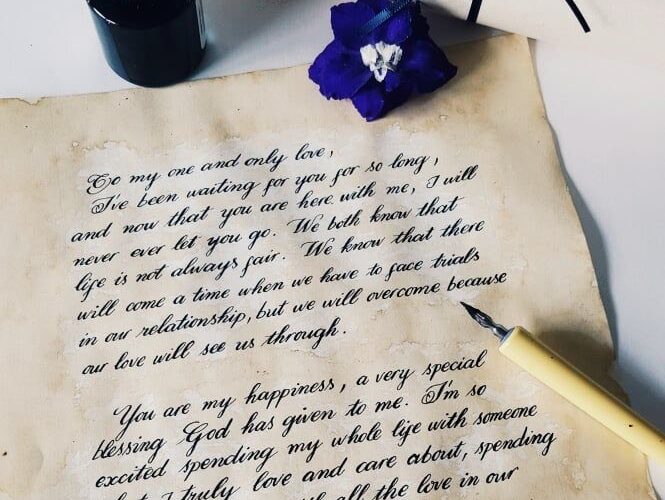 To my one and only love,
I've been waiting for you for so long,
and now that you are here with me, I will
never ever let you go. We both know that
life is not always fair. We know that there
will come a time when we have to face trials
in our relationship, but we will overcome because
our love will see us through.
You are my happiness, a very special
blessing God has given to me. I'm so
excited spending my whole life with someone
I truly love and care about, spending
all the love in our